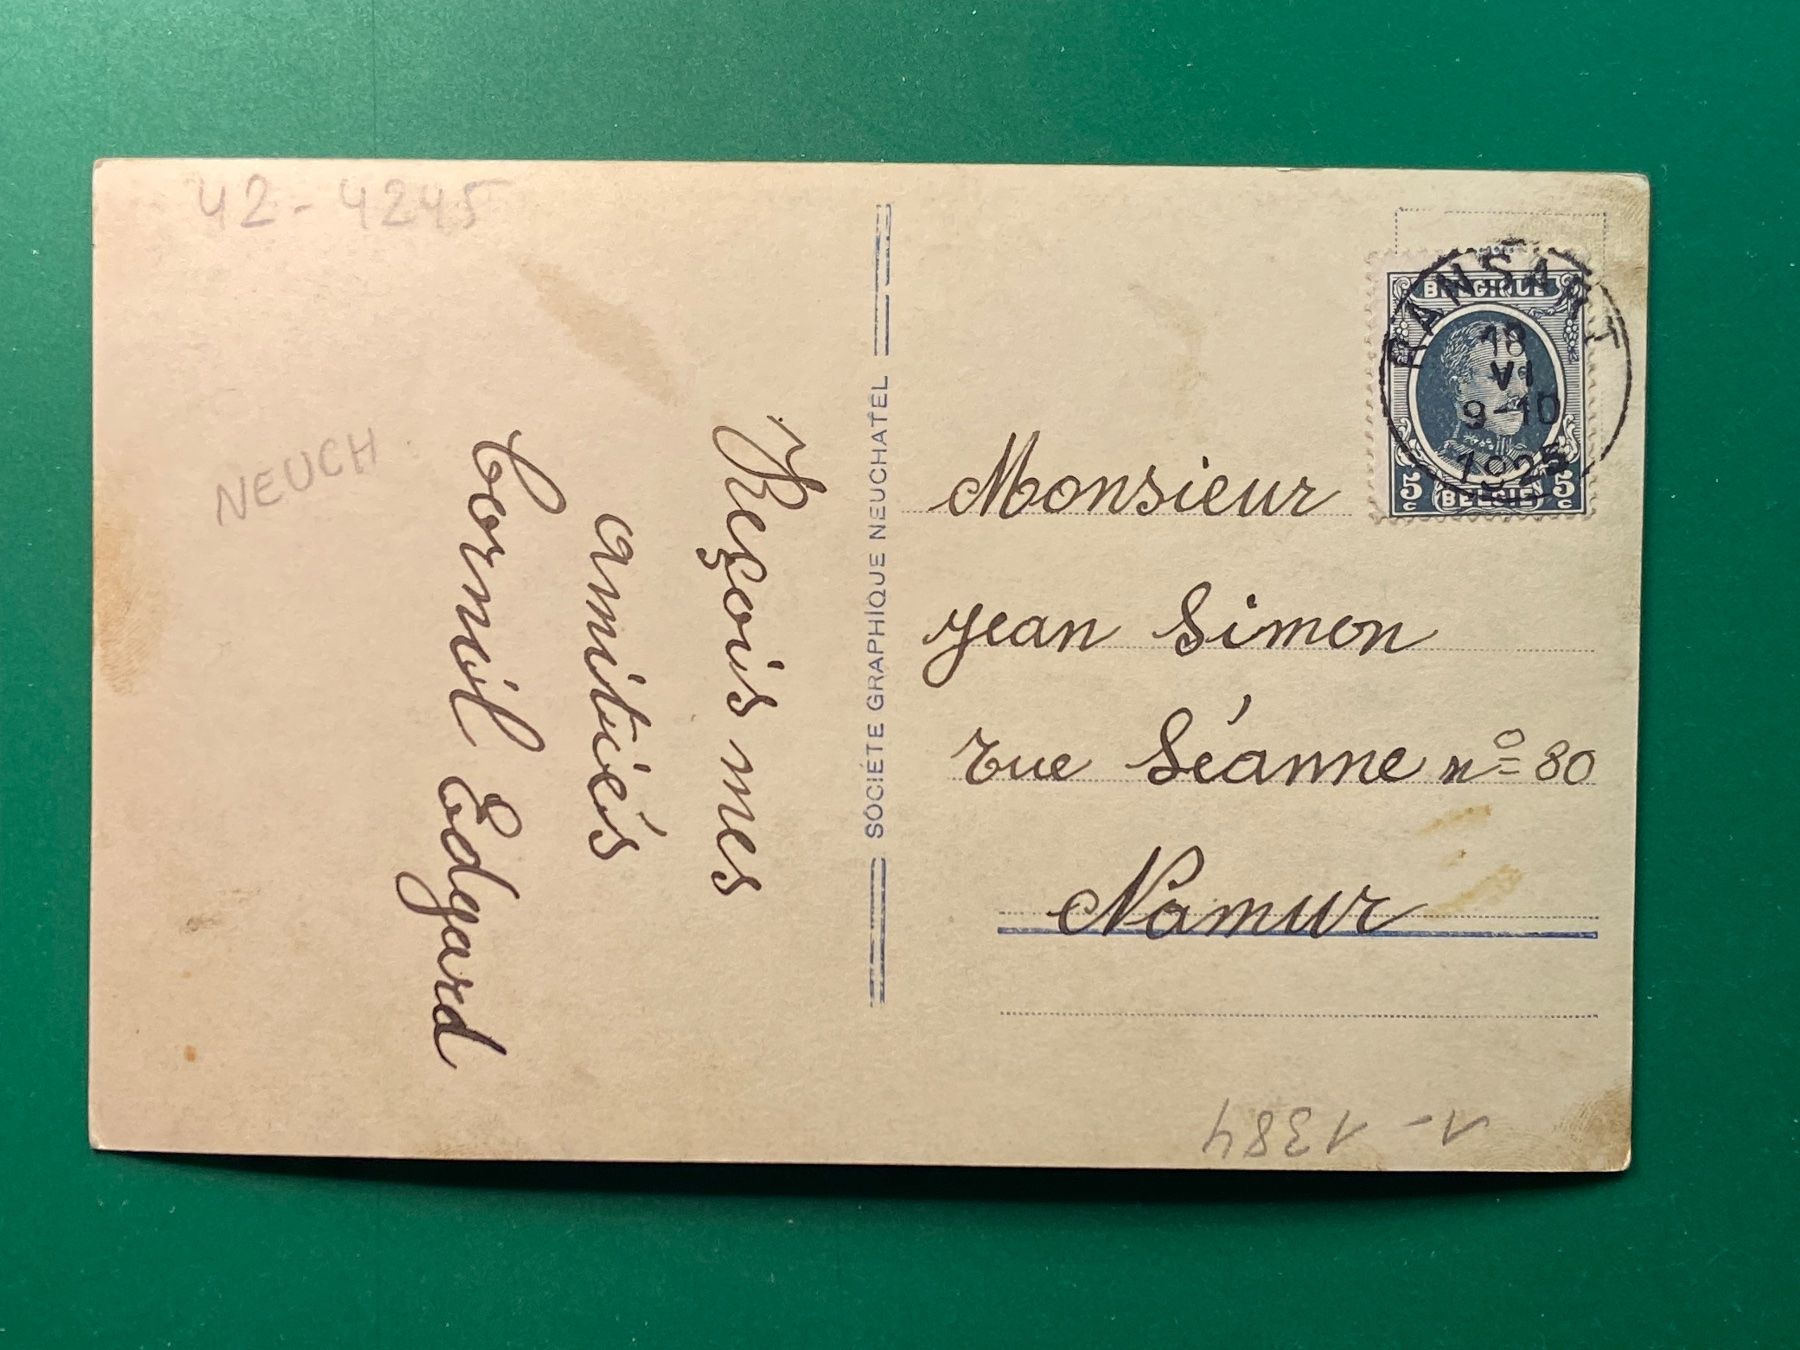 42-4245
NEUCH
Reçois mes
amitiés
Cornil Edgard
SOCIÉTÉ GRAPHIQUE NEUCHATEL
BELGIQUE
RANSART
18
VI
9-10
1925
5c BELGIE 5c
Monsieur
Jean Simon
rue Séanne nº 80
Namur
1-1384